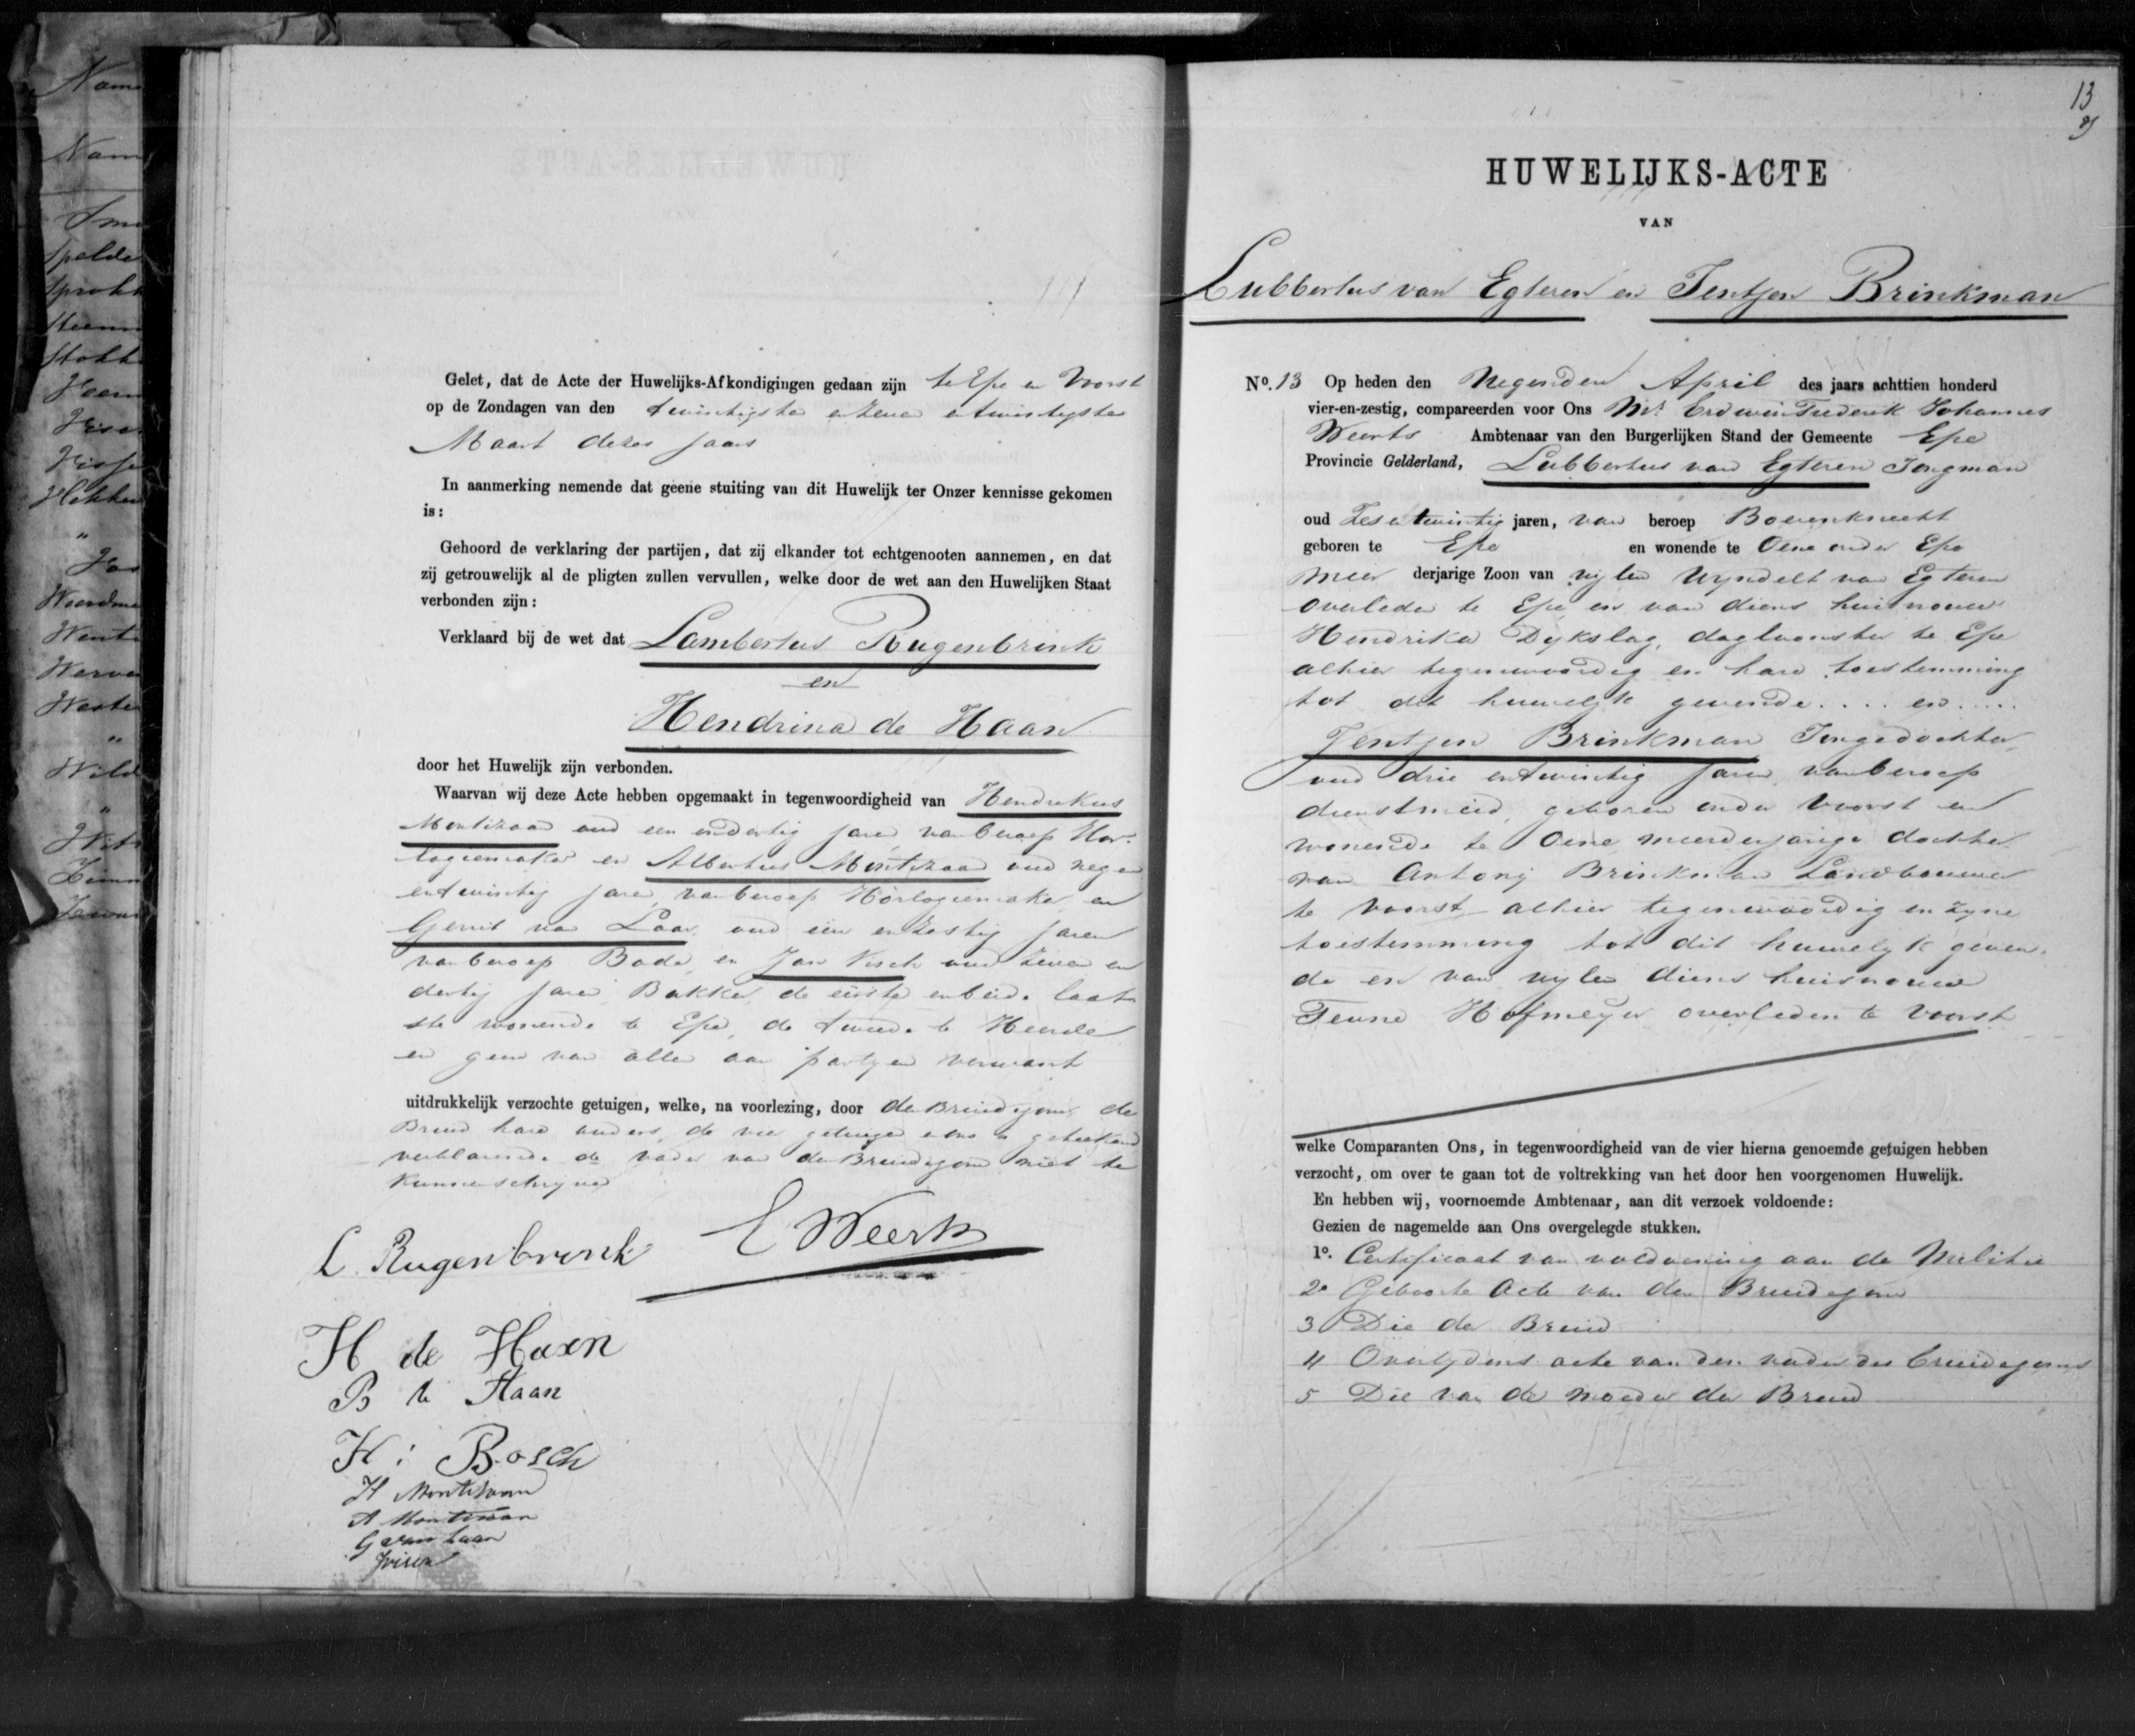 Nam
Nam
Sm
Spelde
Sprokk
Steen
Stokk
Teem
Visse
Vlokken
"
Vos
Weerdm
Wente
Werve
Weste
"
Wild
"
Wits
Gelet, dat de Acte der Huwelijks-Afkondigingen gedaan zijn te Epe en Voorst
op de Zondagen van den twintigsten en zeven en twintigsten
Maart dezes jaars
In aanmerking nemende dat geene stuiting van dit Huwelijk ter Onzer kennisse gekomen
is:
Gehoord de verklaring der partijen, dat zij elkander tot echtgenooten aannemen, en dat
zij getrouwelijk al de pligten zullen vervullen, welke door de wet aan den Huwelijken Staat
verbonden zijn:
Verklaard bij de wet dat Lambertus Rugenbrink
en
Hendrina de Haan
door het Huwelijk zijn verbonden.
Waarvan wij deze Acte hebben opgemaakt in tegenwoordigheid van Hendrikus
Montizaan oud een en dertig jaren van beroep Hor-
logiemaker en Albertus Montizaan oud negen
en twintig jaren, van beroep Horlogiemaker en
Gerrit van Laar, oud een en zestig jaren
van beroep Bode en Jan Visch oud zeven en
dertig jaren Bakker de eerste en beide laat
ste wonende te Epe, de tweede te Heerde
en geen van allen aan partijen verwant
uitdrukkelijk verzochte getuigen, welke, na voorlezing, door den Bruidegom, de
Bruid hare ouders, de vier getuigen en ons is geteekend
verklarende de vader van den Bruidegom niet te
kunnen schrijven
L. Rugenbrink E Weerts
H de Haan
B de Haan
H: Bosch
H Montizaan
A Montizaan
G van Laar
J Visch
13
HUWELIJKS-ACTE
VAN
Lubbertus van Egteren en Jentjen Brinkman
No. 13 Op heden den Negenden April des jaars achttien honderd
vier-en-zestig, compareerden voor Ons Mr. Erdwin Frederik Johannes
Weerts Ambtenaar van den Burgerlijken Stand der Gemeente Epe
Provincie Gelderland, Lubbertus van Egteren Jongman
oud Zes en twintig jaren, van beroep Boerenknecht
geboren te Epe en wonende te Oene onder Epe
meer derjarige Zoon van wylen Wyndelt van Egteren
overleden te Epe en van diens huisvrouw
Hendrika Dykslag, dagloonster te Epe
alhier tegenwoordig en hare toestemming
tot dit huwelyk gevende .... en .....
Jentjen Brinkman Jongedochter
oud drie en twintig jaren, van beroep
dienstmeid, geboren onder Voorst en
wonende te Oene meerderjarige dochter
van Antony Brinkman Landbouwer
te Voorst alhier tegenwoordig en zyne
toestemming tot dit huwelyk geven-
de en van wylen diens huisvrouw
Teune Hofmeyer overleden te Voorst
welke Comparanten Ons, in tegenwoordigheid van de vier hierna genoemde getuigen hebben
verzocht, om over te gaan tot de voltrekking van het door hen voorgenomen Huwelijk.
En hebben wij, voornoemde Ambtenaar, aan dit verzoek voldoende:
Gezien de nagemelde aan Ons overgelegde stukken.
1o. Certificaat van voldoening aan de Militie
2o Geboorte Acte van den Bruidegom
3 Die der Bruid
4 Overlydens acte van den vader des bruidegoms
5 Die van de moeder der Bruid